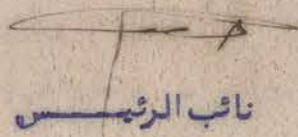 نائب الرئيس